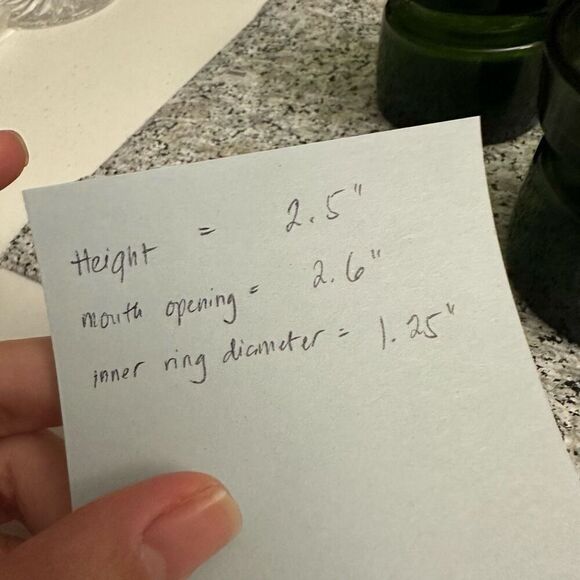 Height = 2.5"
mouth opening = 2.6"
inner ring diameter = 1.25"